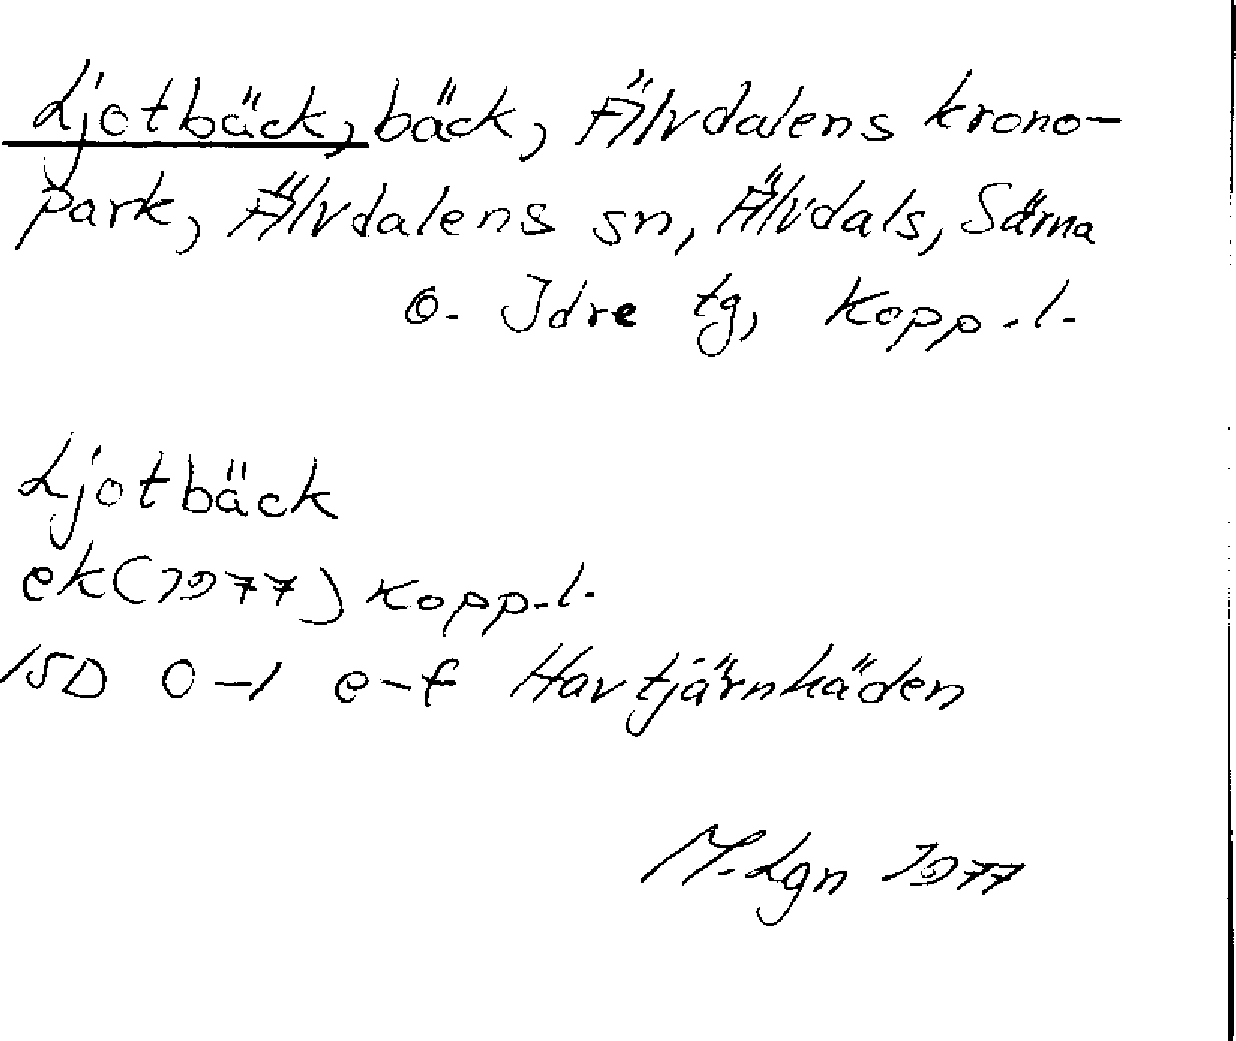 Ljotbäck, bäck, Älvdalens krono-
park, Älvdalens sn, Älvdals, Särna
o. Idre tg, Kopp.l.
Ljotbäck
ek(1977) Kopp.l.
15D 0-1 e-f Havtjärnhäden
M.Lgn 1977